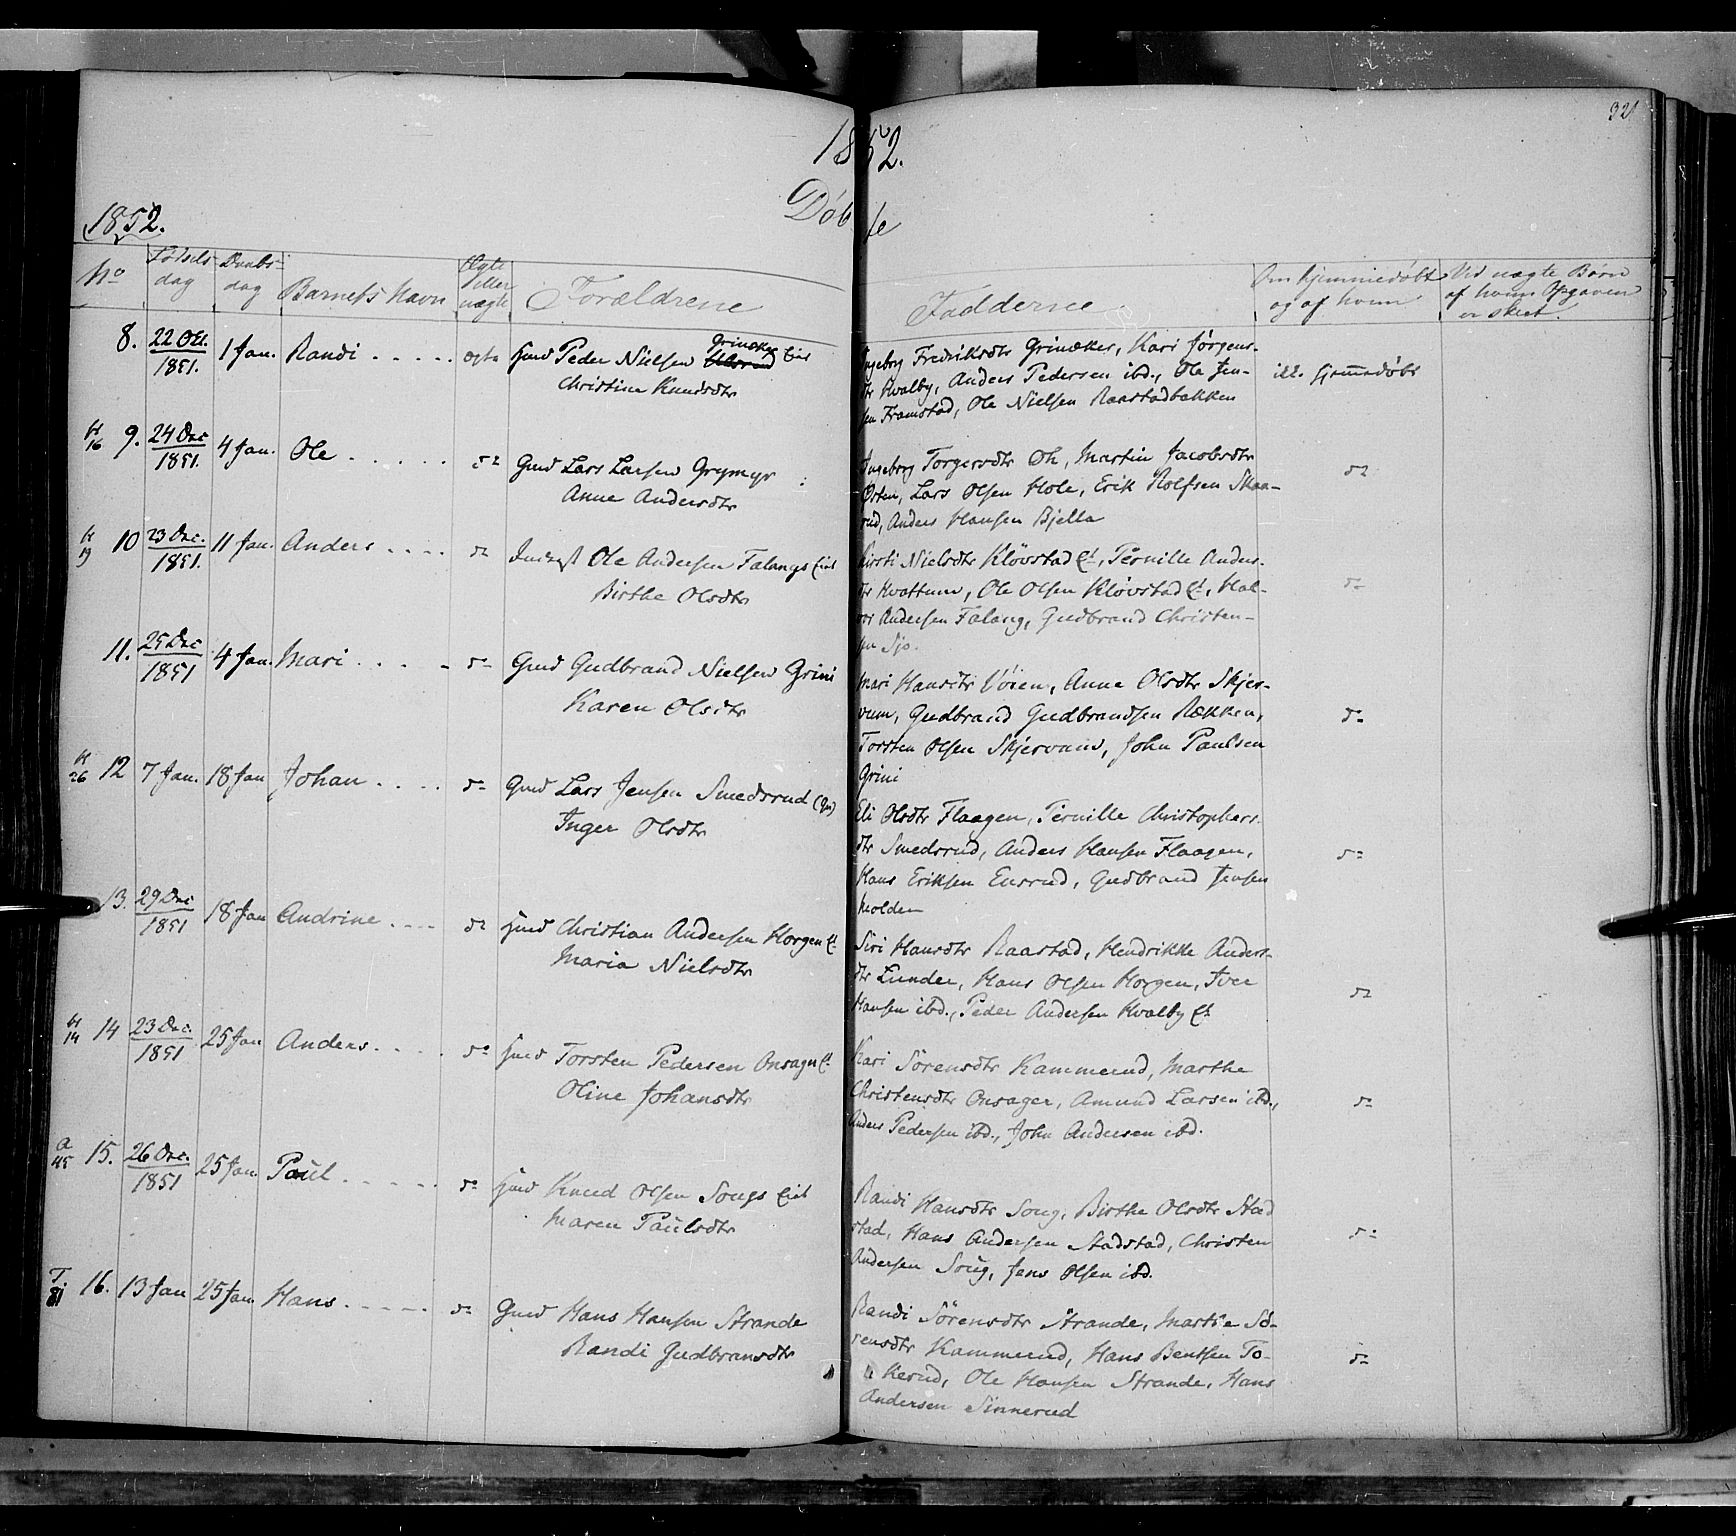 321
1852.
Døbte
1852.
No Fødselsdag Daabsdag Barnets Navn Ægte eller uægte Forældrene Fadderne Om hjemmedøbt og af hvem Ved uægte Børn af hvem Opgaven er skeet.
8. 22 Oct. 1851. 1 Jan. Randi ægte Huusmd Peder Nielsen Grinaker Eiet
Christine Knudsdtr
Ingeborg Fredriksdtr Grinaker, Kari Jørgens-
dtr Kvalby, Anders Pedersen ibd., Ole Jen-
sen Framstad, Ole Nielsen Raastadbakken
ikke hjemmedøbt
H 16 9. 24 Dec 1851. 4 Jan. Ole do Gmd Lars Larsen Grymyr
Anne Andersdtr
Ingeborg Torgersdtr Oh, Martin Jacobsdtr
Østen, Lars Olsen Hole, Erik Rolfsen Skaa-
rud, Anders Hansen Bjella
do
H 19 10 23 Dec. 1851. 11 Jan. Anders do Inderst Ole Andersen Falangs Eiet
Birthe Olsdtr
Kirsti Nielsdtr Kløvstad Et, Pernille Anders-
dtr Kvattum, Ole Olsen Kløvstad Et, Hal-
vor Andersen Falang, Gudbrand Christen-
sen Sjo.
do
11. 25 Dec 1851 4 Jan. Mari do Gmd Gudbrand Nielsen Grini
Karen Olsdtr
Mari Hansdtr Vøien, Anne Olsdtr Skjer-
vum, Gudbrand Gudbrandsen Rækken,
Torsten Olsen Skjervum, John Paulsen
Grini
do
H 26 12 7 Jan. 18 Jan Johan do Gmd Lars Jensen Smedsrud (Gr)
Inger Olsdtr
Eli Olsdtr Flaagen, Pernille Christophers-
dtr Smedsrud, Anders Hansen Flaagen,
Hans Eriksen Ensrud, Gudbrand Jensen
Molden
do
13. 29 Dec 1851 18 Jan Andrine do Huusmd Christian Andersen Horgen Et
Maria Nielsdtr
Siri Hansdtr Raastad, Hendrikke Anders-
dtr Lunder, Hans Olsen Horgen, Iver
Hansen ibd., Peder Andersen Kvalby Et
do
H 14 14 23 Dec. 1851 25 Jan Anders do Huusmd Torsten Pedersen Onsager Et
Oline Johansdtr
Kari Sørensdtr Kammerud, Marthe
Christensdtr Onsager, Amund Larsen ibd.,
Anders Pedersen ibd., John Andersen ibd.
do
A 45 15. 26 Dec. 1851 25 Jan Paul do Huusmd Knud Olsen Sougs Eiet
Maren Paulsdtr
Randi Hansdtr Soug, Birthe Olsdtr Stad
stad, Hans Andersen Stadstad, Christen
Andersen Soug, Jens Olsen ibd.
do
T 81 16. 13 Jan 25 Jan. Hans do Gmd Hans Hansen Strande
Randi Gudbransdtr
Randi Sørensdtr Strande, Marthe Sø-
rensdtr Kammerud, Hans Bentsen To-
kerud, Ole Hansen Strande, Hans
Andersen Sinnerud
do